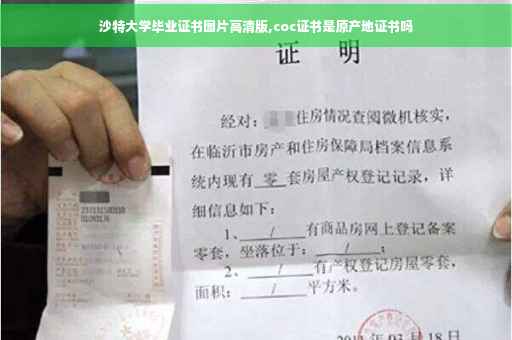 沙特大学毕业证书图片高清版,coc证书是原产地证书吗
证 明
经对: 住房情况查阅微机核实,
在临沂市房产和住房保障局档案信息系
统内现有 零 套房屋产权登记记录, 详
细信息如下:
1、 / 有商品房网上登记备案
零套, 坐落位于: / ;
2、 / 有产权登记房屋零套,
面积: / 平方米。
03 月 18 日